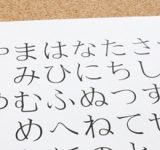 さしすせ
たちつて
なにぬねの
はひふへ
まみむめ
やゆ